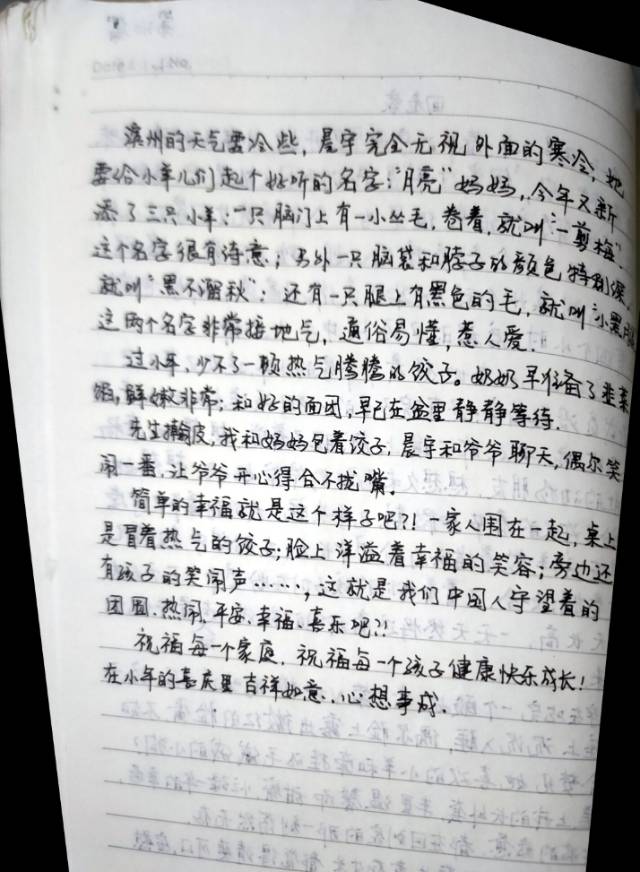 滨州的天气要冷些，晨宇完全无视外面的寒冷，她
要给小羊儿们起个好听的名字："月亮"妈妈，今年又新
添了三只小羊：一只脑门上有一小丛毛，卷着，就叫"一剪梅"，
这个名字很有诗意；另外一只脑袋和脖子的颜色特别深
就叫"黑不溜秋"；还有一只腿上有黑色的毛，就叫"小黑
这两个名字非常接地气，通俗易懂，惹人爱．
过小年，少不了一顿热气腾腾的饺子。奶奶早准备了韭菜
馅，鲜嫩非常；和好的面团，早已在盆里静静等待．
先生擀皮，我和妈妈包着饺子，晨宇和爷爷聊天，偶尔笑
闹一番，让爷爷开心得合不拢嘴．
简单的幸福就是这个样子吧?！一家人围在一起，桌上
是冒着热气的饺子；脸上洋溢着幸福的笑容；旁边还
有孩子的笑闹声……，这就是我们中国人守望着的
团圆．热闹．平安．幸福．喜乐吧?！
祝福每一个家庭．祝福每一个孩子健康快乐成长！
在小年的喜庆里吉祥如意．心想事成．